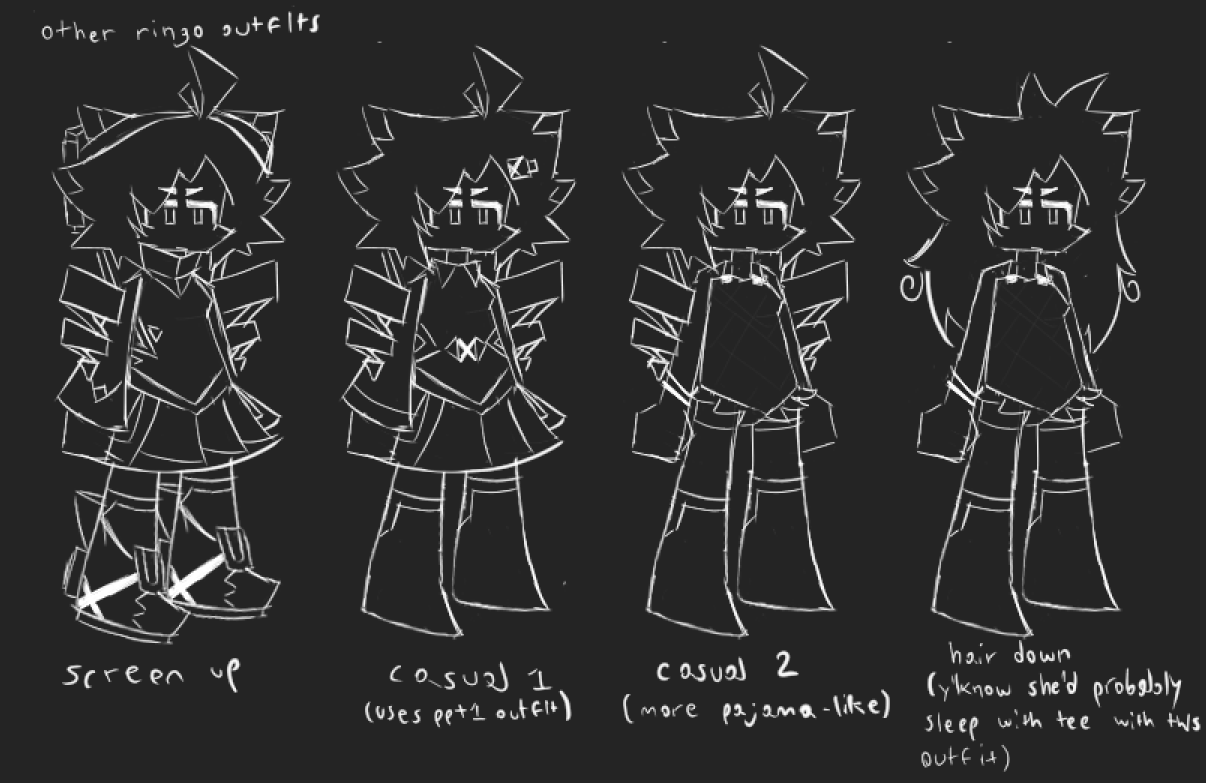 other ringo outfits
screen up
casual 1
(uses ppt1 outfit)
casual 2
(more pajama-like)
hair down
(y'know she'd probably
sleep with tee with this
outfit)